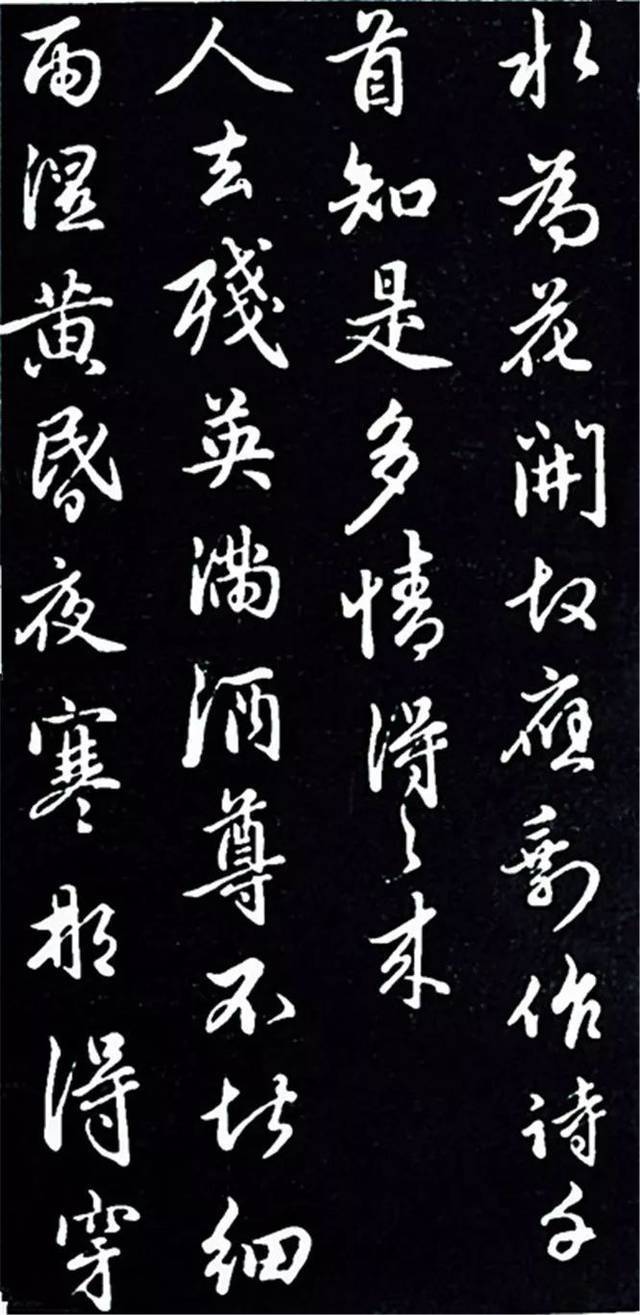 水為花開故應剩作詩千
首知是多情得々来
人去殘英滿酒尊不堪細
雨濕黃昏夜寒那得穿